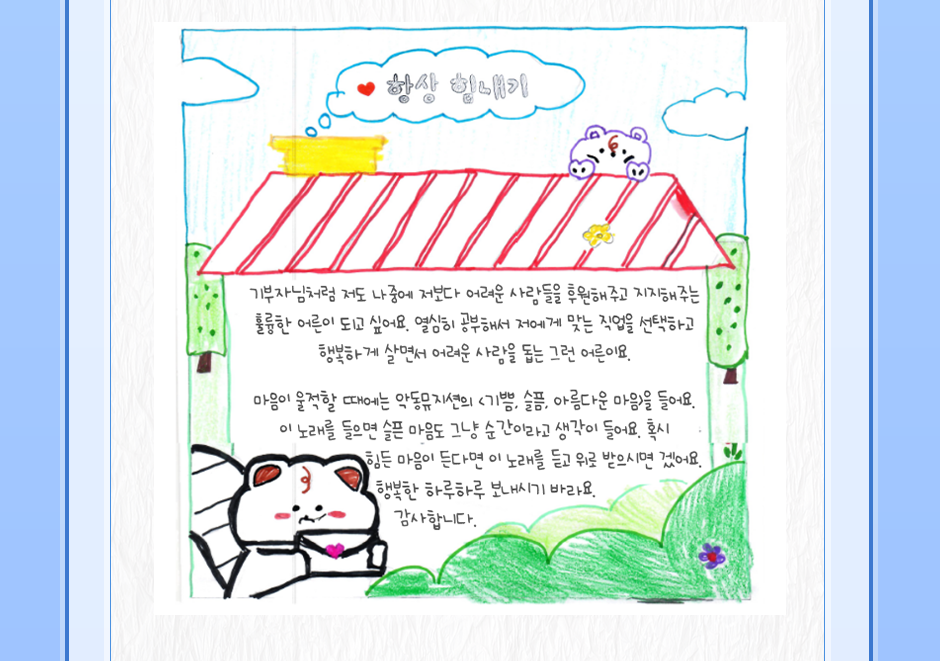 항상 힘내기
기부자님처럼 저도 나중에 저보다 어려운 사람들을 후원해주고 지지해주는
훌륭한 어른이 되고 싶어요. 열심히 공부해서 저에게 맞는 직업을 선택하고
행복하게 살면서 어려운 사람을 돕는 그런 어른이요.
마음이 울적할 때에는 악동뮤지션의 <기쁨, 슬픔, 아름다운 마음>을 들어요.
이 노래를 들으면 슬픈 마음도 그냥 순간이라고 생각이 들어요. 혹시
힘든 마음이 든다면 이 노래를 듣고 위로 받으시면 겠어요.
행복한 하루하루 보내시기 바라요.
감사합니다.